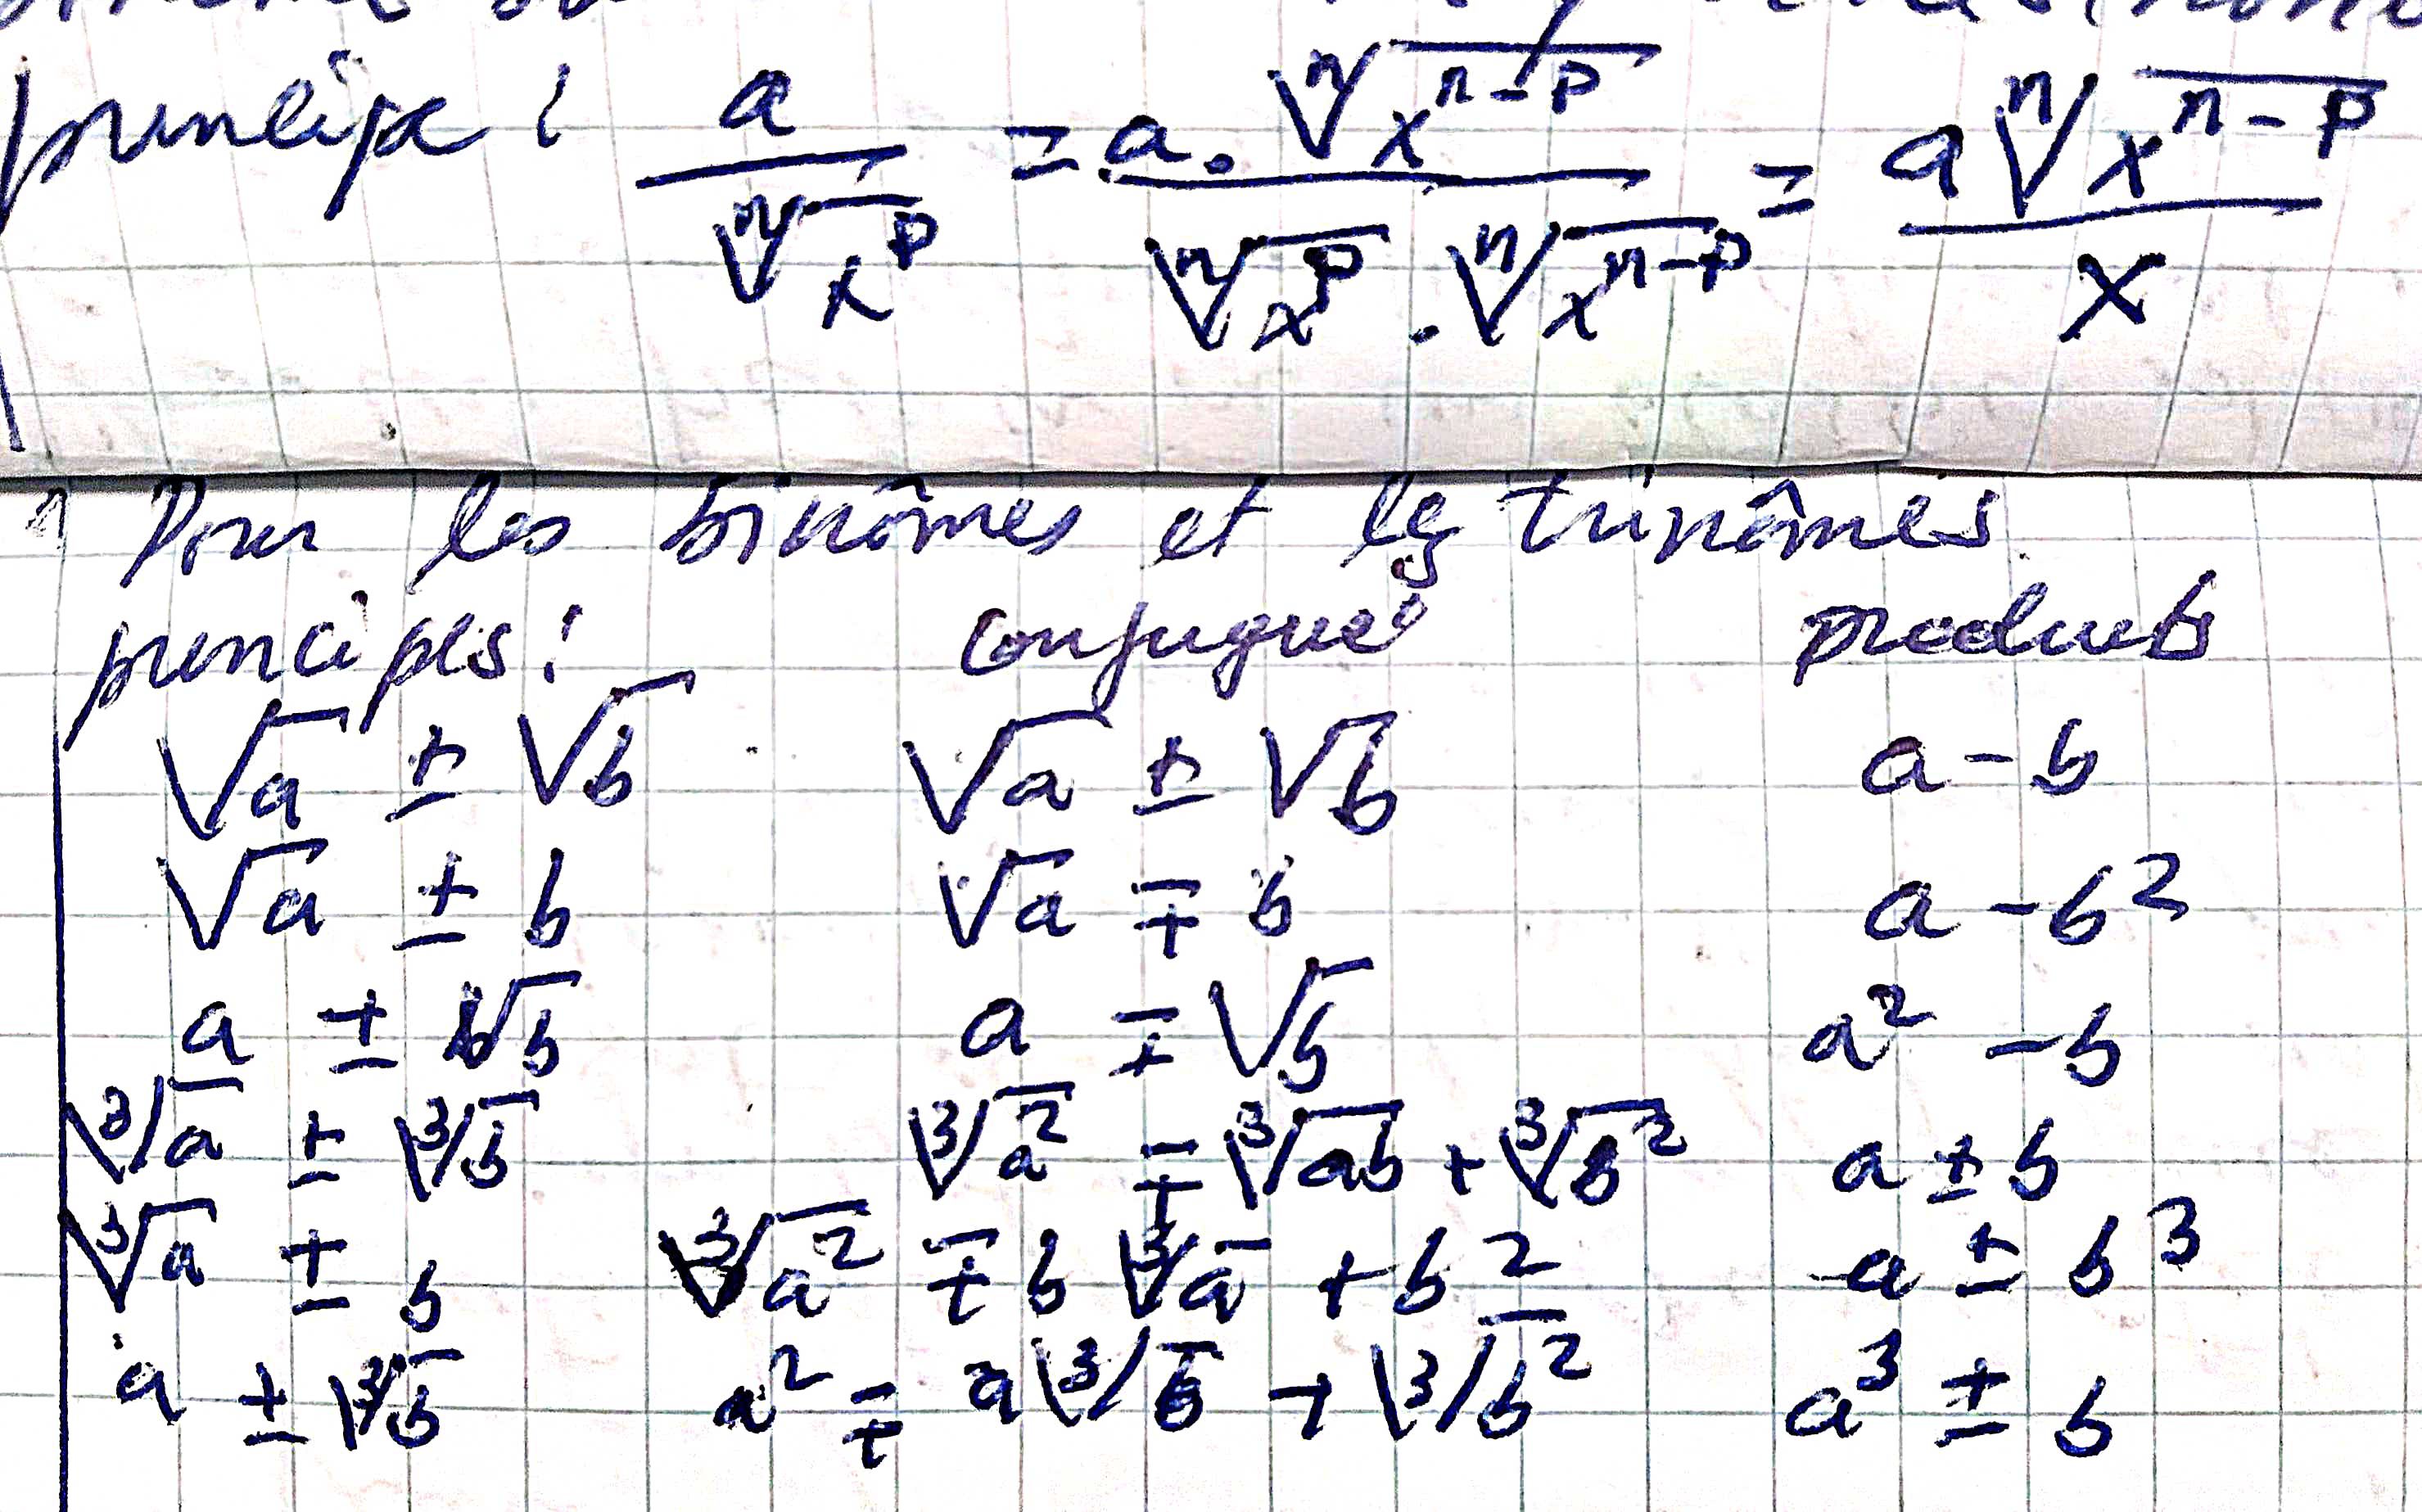 principe : a/ⁿ√x^p = a.ⁿ√x^(n-p) / ⁿ√x^p . ⁿ√x^(n-p) = aⁿ√x^(n-p) / x
Pour les binômes et les trinômes
principes : conjugué produits
√a ± √b √a ± √b a - b
√a ± b √a ∓ b a - b²
a ± √b a ∓ √b a² - b
³√a ± ³√b ³√a² ∓ ³√ab + ³√b² a ± b
³√a ± b ³√a² ∓ b ³√a + b² a ± b³
a ± ³√b a² ∓ a ³√b + ³√b² a³ ± b